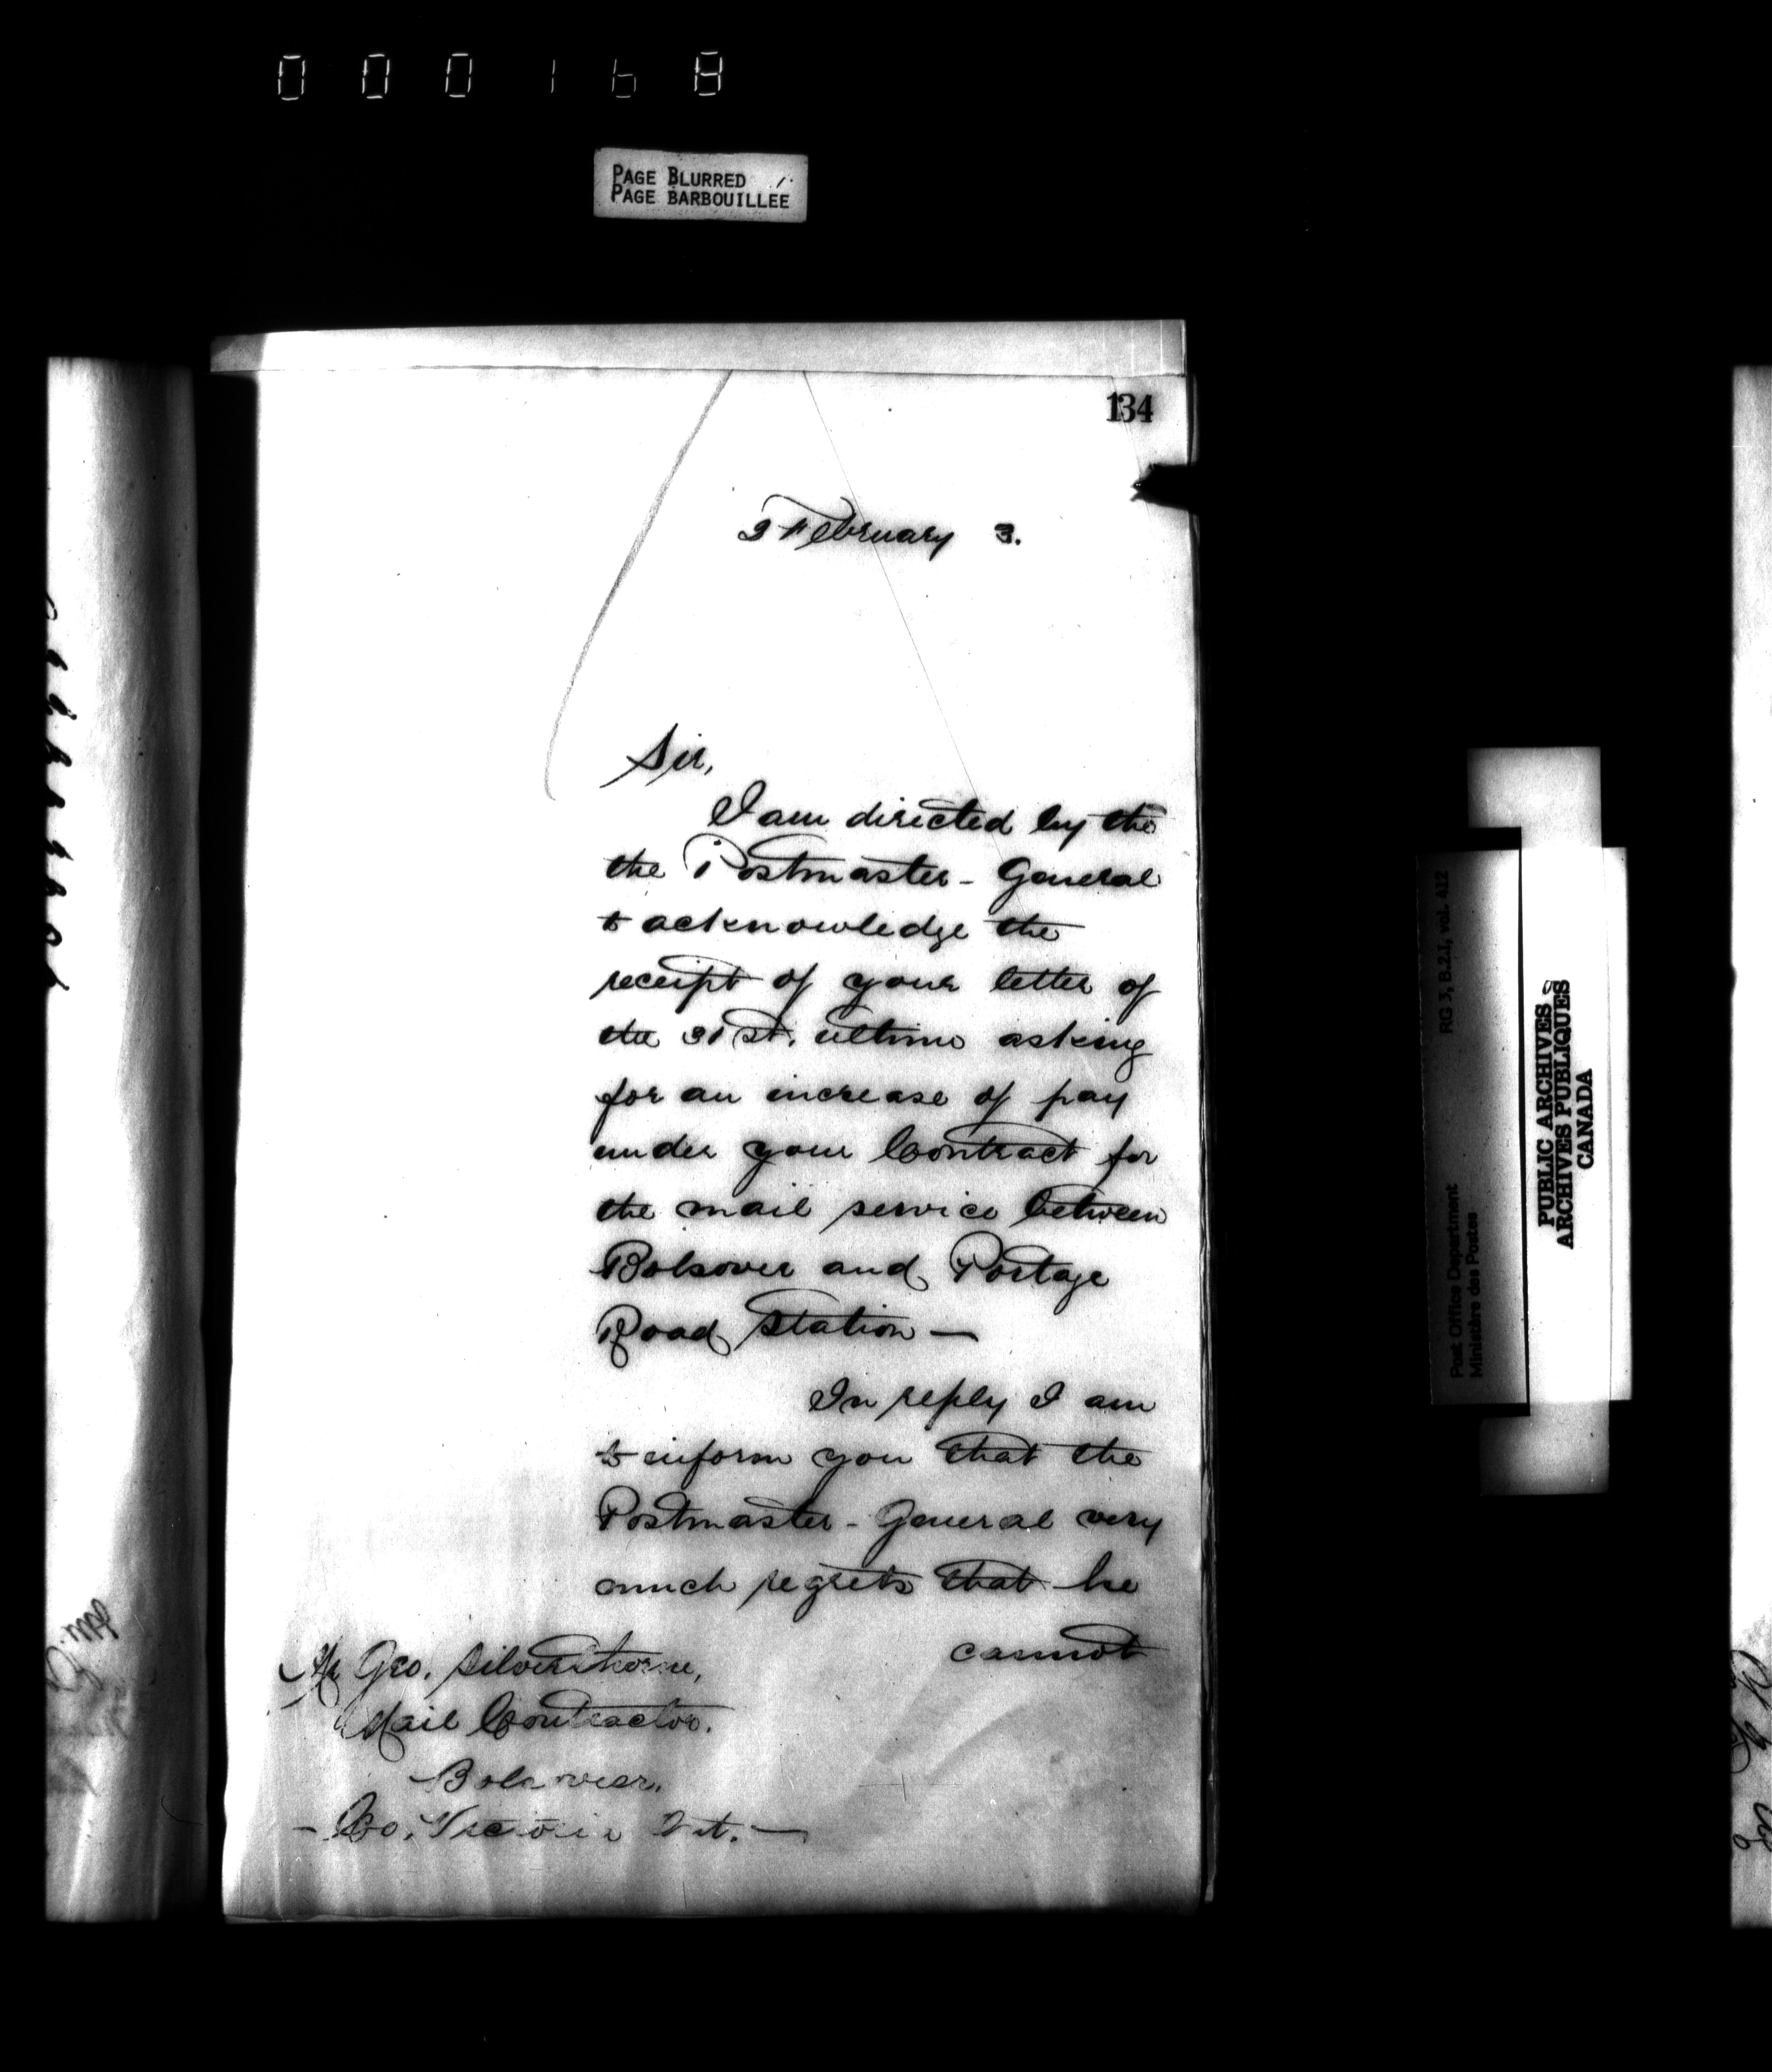 000168
PAGE BLURRED
PAGE BARBOUILLÉE
134
2 February 3.
Sir,
I am directed by the
the Postmaster-General
to acknowledge the
receipt of your letter of
the 31st. ultimo asking
for an increase of pay
under your Contract for
the mail service between
Bolsover and Portage
Road Station —
In reply I am
to inform you that the
Postmaster-General very
much regrets that he
cannot
Mr Geo. Silverthorne,
Mail Contractor.
Bolsover.
— Co. Victoria Ont. —
RG 3, B.2.1, vol. 412
Post Office Department
Ministère des Postes
PUBLIC ARCHIVES
ARCHIVES PUBLIQUES
CANADA